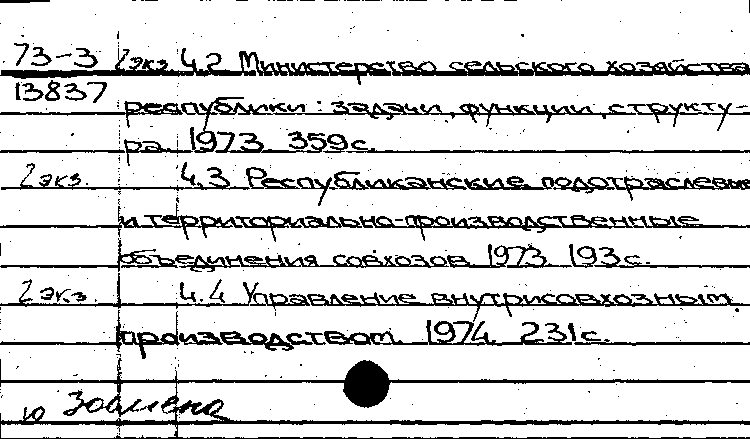 73-3 2экз. 4.2 Министерство сельского хозяйства
13837 республики: задачи, функции, структу-
ра. 1973. 359с.
2экз. 4.3 Республиканские подотраслевые
и территориально-производственные
объединения совхозов. 1973. 193с.
2экз. 4.4 Управление внутрисовхозным
производством. 1974. 231с.
Замена